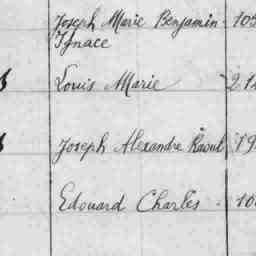 Joseph Marie Benjamin 10
Ignace
Louis Marie 2
Joseph Alexandre Raoul 19
Edouard Charles 10